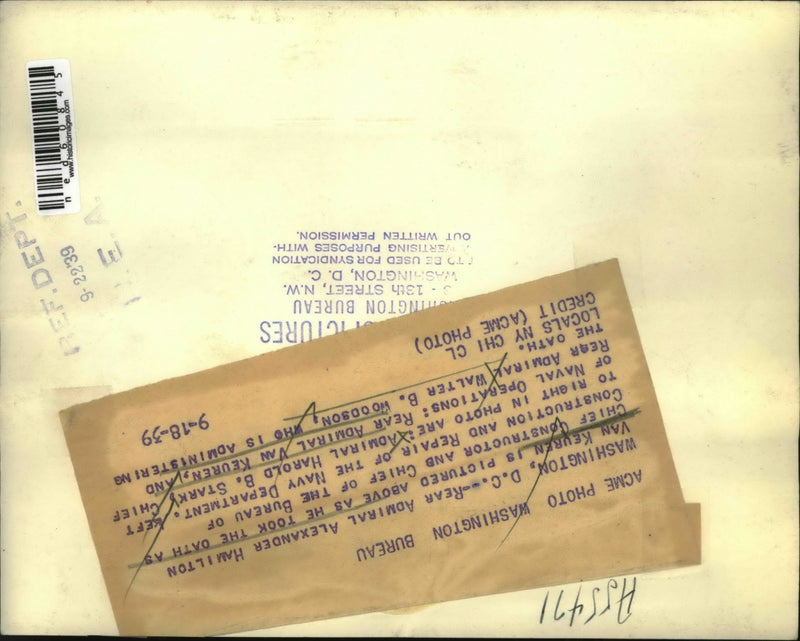 ned60845
www.historicimages.com
REF. DEPT.
9-22'39
E. A.
A55471
ACME PHOTO WASHINGTON BUREAU
WASHINGTON, D.C.--REAR ADMIRAL ALEXANDER HAMILTON
VAN KEUREN, IS PICTURED ABOVE AS HE TOOK THE OATH AS
CHIEF CONSTRUCTOR AND CHIEF OF THE BUREAU OF
CONSTRUCTION AND REPAIR OF THE NAVY DEPARTMENT. LEFT
TO RIGHT IN PHOTO ARE: ADMIRAL HAROLD B. STARK, CHIEF
OF NAVAL OPERATIONS: REAR ADMIRAL VAN KEUREN, AND
REAR ADMIRAL WALTER B. WOODSON, WHO IS ADMINISTERING
THE OATH.
LOCALS NY CHI CL 9-18-39
CREDIT (ACME PHOTO)
PICTURES
WASHINGTON BUREAU
- 13th STREET, N.W.
WASHINGTON, D. C.
TO BE USED FOR SYNDICATION
ADVERTISING PURPOSES WITH-
OUT WRITTEN PERMISSION.